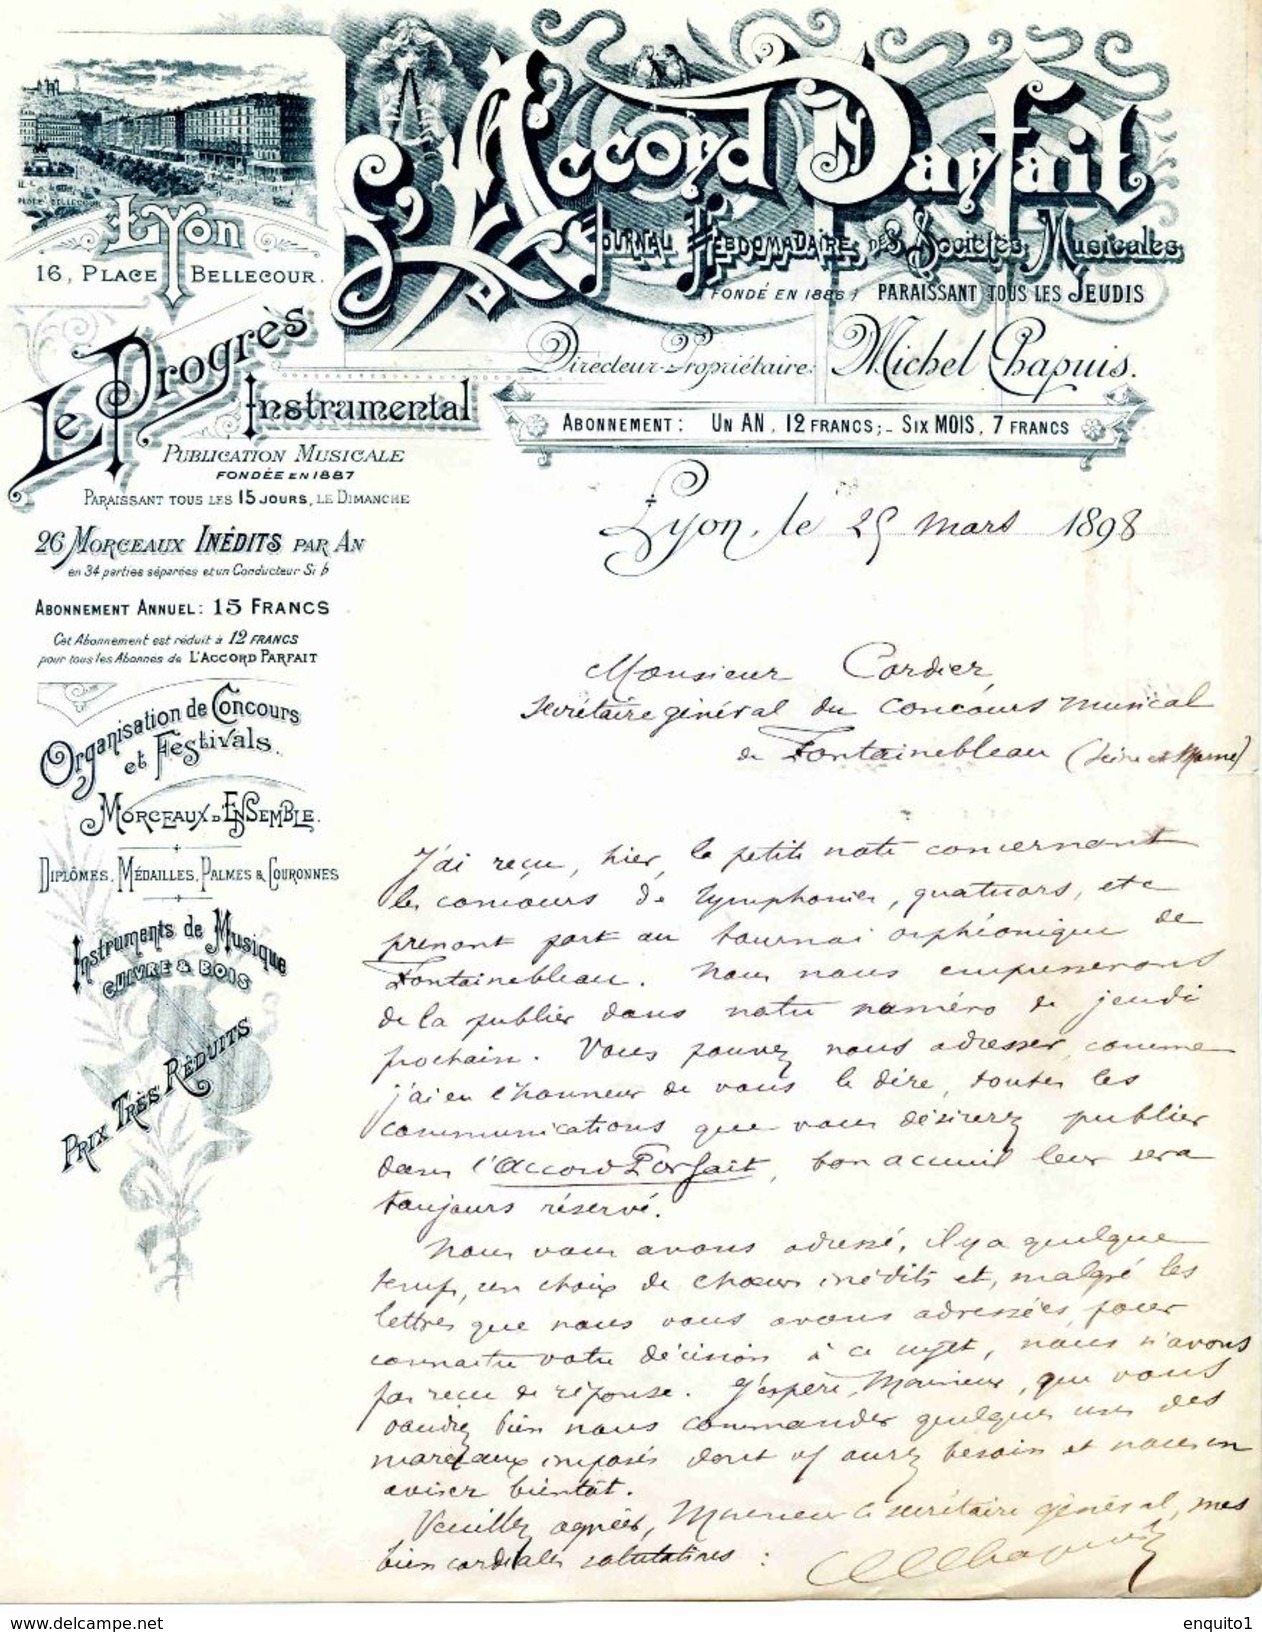 Place Bellecour
Lyon
16, Place Bellecour.
L'Accord Parfait
Journal Hebdomadaire des Sociétés Musicales
Fondé en 1886, Paraissant tous les Jeudis
Directeur-Propriétaire: Michel Chapuis.
Abonnement: Un An, 12 francs; - Six mois, 7 francs
Le Progrès
Instrumental
Publication Musicale
Fondée en 1887
Paraissant tous les 15 jours, le Dimanche
26 Morceaux Inédits par An
en 34 parties séparées et un Conducteur Si b
Abonnement Annuel: 15 Francs
Cet Abonnement est réduit à 12 francs
pour tous les Abonnés de L'Accord Parfait
Organisation de Concours
et Festivals.
Morceaux d'Ensemble.
Diplômes, Médailles, Palmes & Couronnes
Instruments de Musique
Cuivre & Bois
Prix Très Réduits
Lyon, le 25 mars 1898
Monsieur Cordier,
secrétaire général du concours musical
de Fontainebleau (Seine et Marne)
J'ai reçu, hier, la petite note concernant
les concours de symphonies, quatuors, etc
prenant part au tournoi orphéonique de
Fontainebleau. Nous nous empresserons
de la publier dans notre numéro de jeudi
prochain. Vous pouvez nous adresser, comme
j'ai eu l'honneur de vous le dire, toutes les
communications que vous désirerez publier
dans l'Accord Parfait, bon accueil leur sera
toujours réservé.
Nous vous avons adressé, il y a quelque
temps, un choix de chœurs inédits et, malgré les
lettres que nous vous avons adressées, pour
connaitre votre décision à ce sujet, nous n'avons
pas reçu de réponse. J'espère, Monsieur, que vous
voudrez bien nous commander quelques uns des
morceaux imposés dont vs aurez besoin et nous en
aviser bientôt.
Veuillez agréer, Monsieur le secrétaire général, mes
bien cordiales salutations: M Chapuis
www.delcampe.net
enquito1